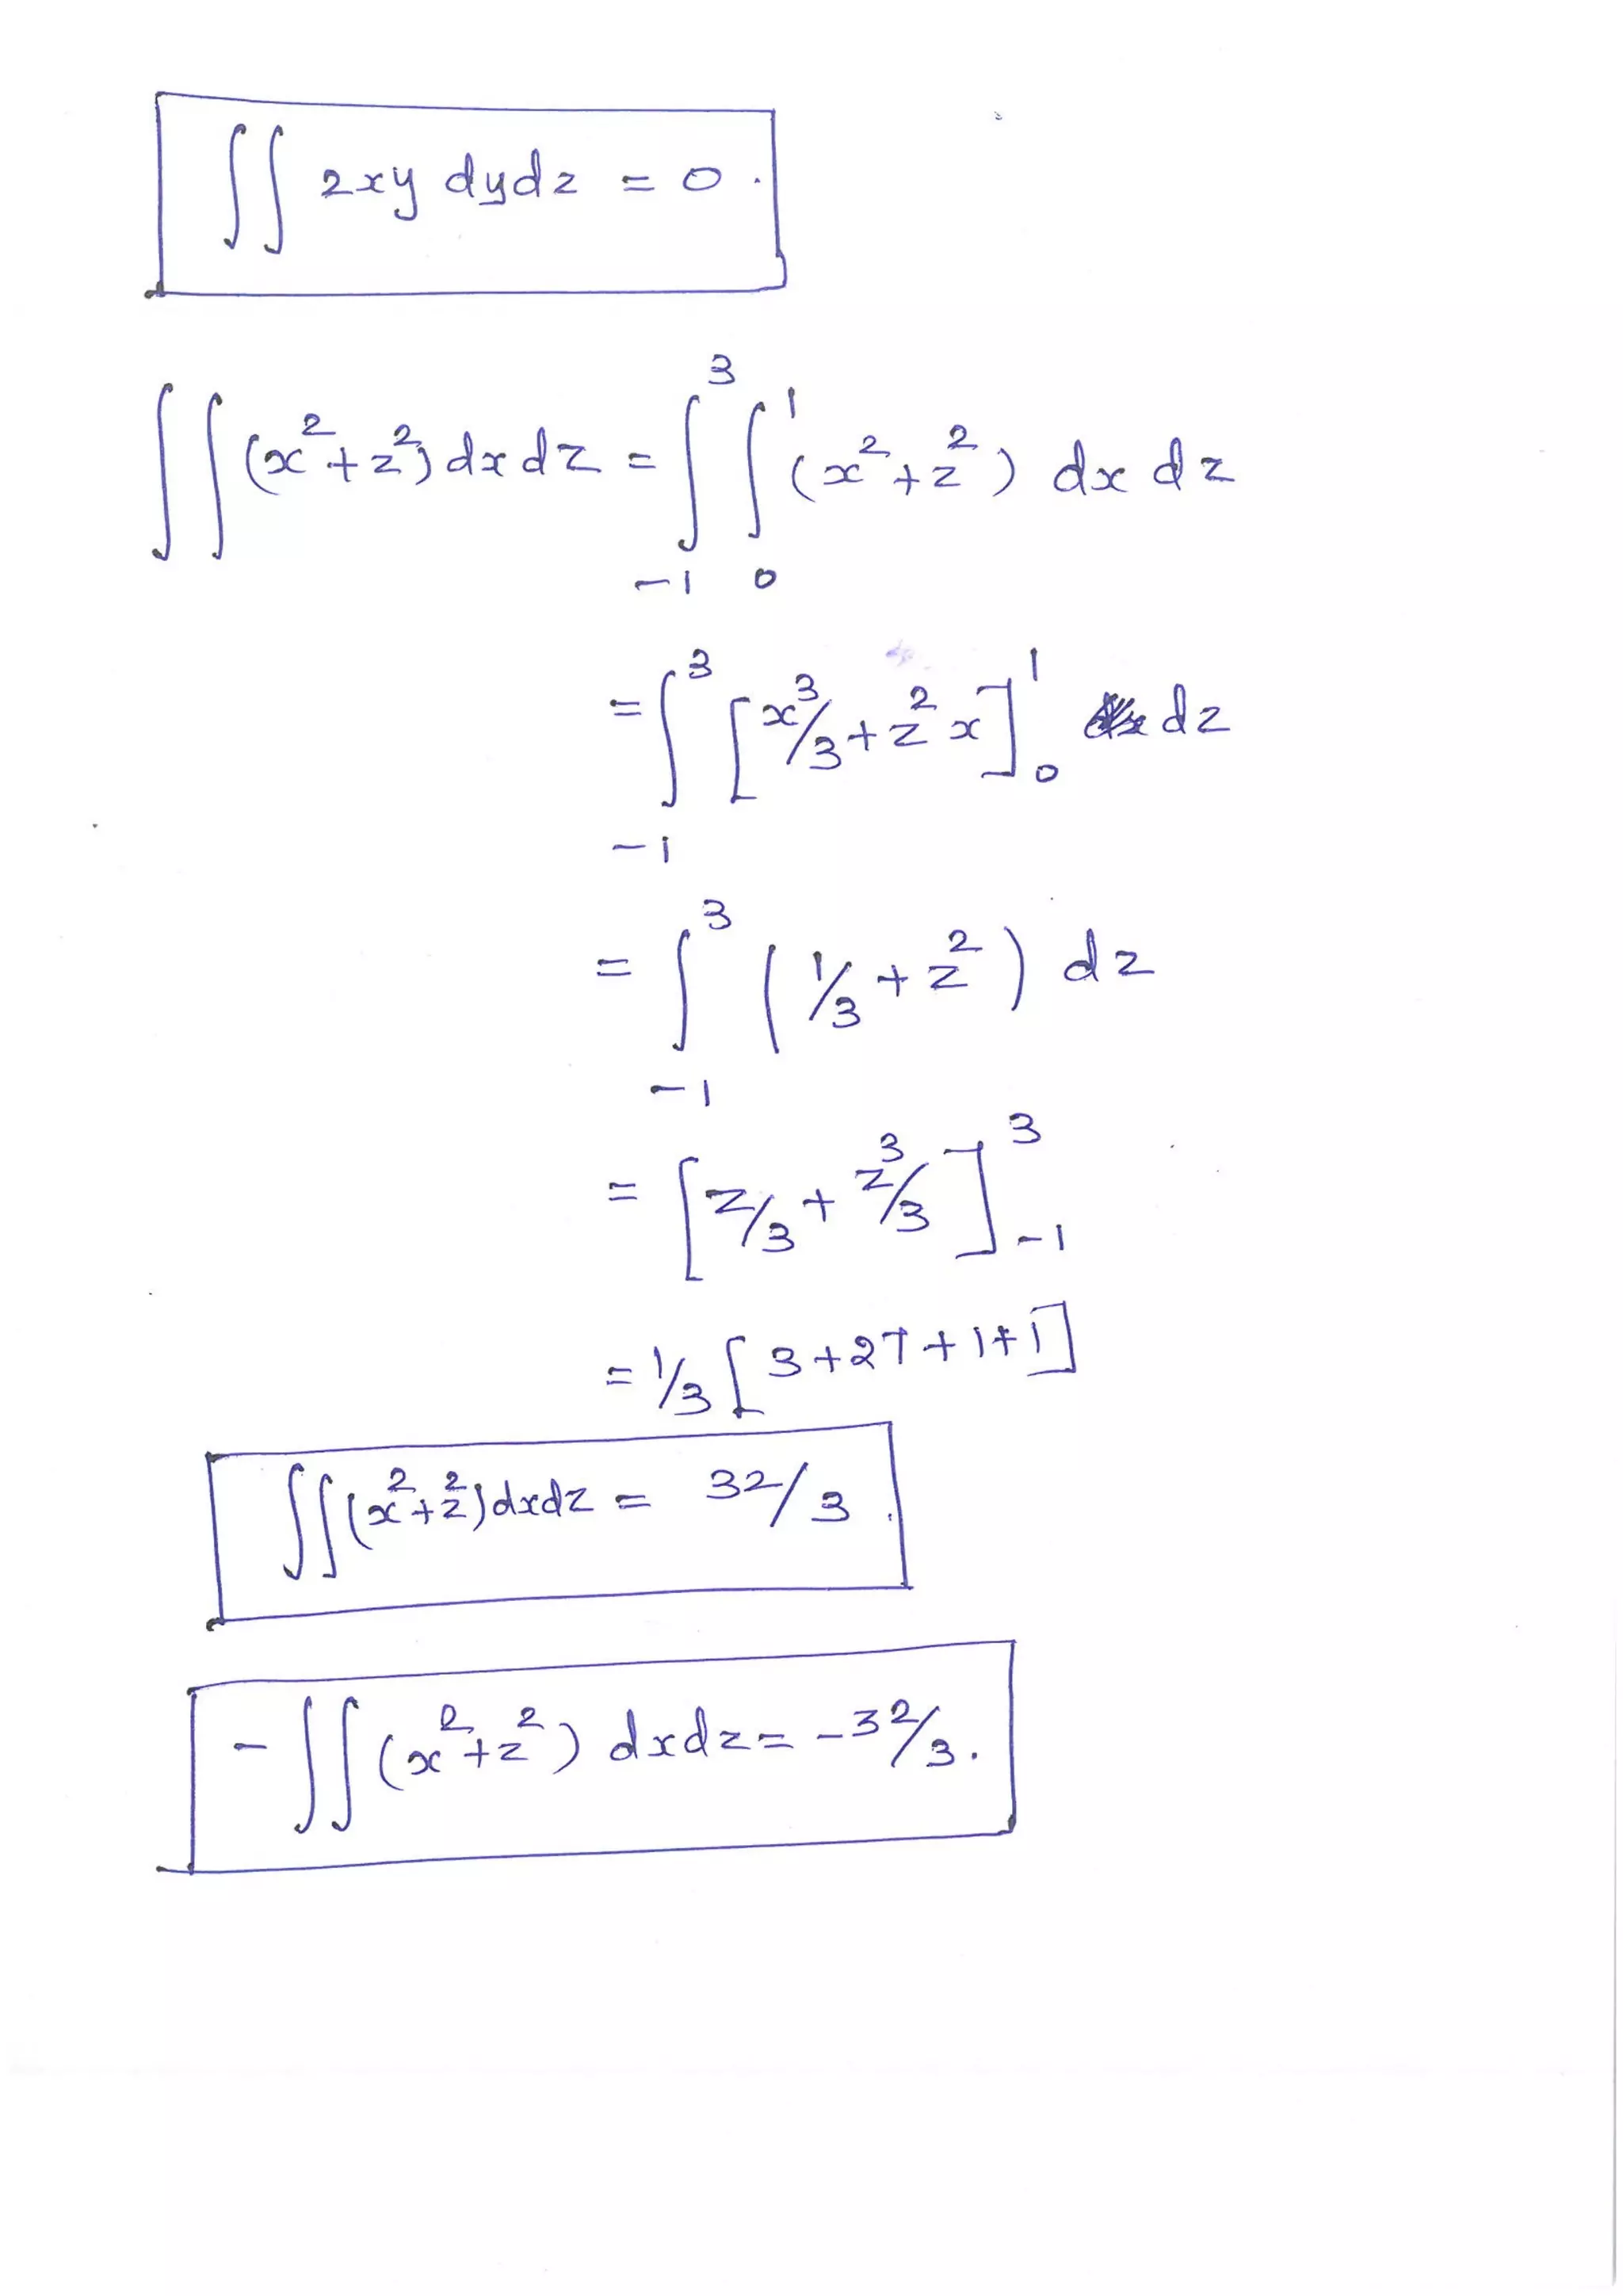 ∫∫ 2xy dydz = 0.
∫∫ (x²+z²) dx dz = ∫₋₁³ ∫₀¹ (x²+z²) dx dz
= ∫₋₁³ [x³/3 + z²x]₀¹ dz
= ∫₋₁³ (1/3 + z²) dz
= [z/3 + z³/3]₋₁³
= 1/3 [3+27+1+1]
∫∫ (x²+z²) dxdz = 32/3.
- ∫∫ (x²+z²) dxdz = -32/3.